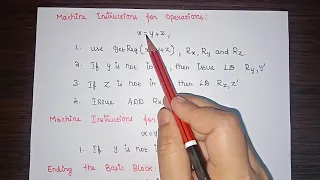 Machine Instructions for Operations:
x = y + z,
1. Use getReg(x y+z), Rx, Ry and Rz
2. If y is not in , then issue LD Ry, y'
3. If z is not in , then issue LD Rz, z'
4. Issue ADD Rx
Machine Instructions for
x = y
1. If y is not in
Ending the Basic Block: